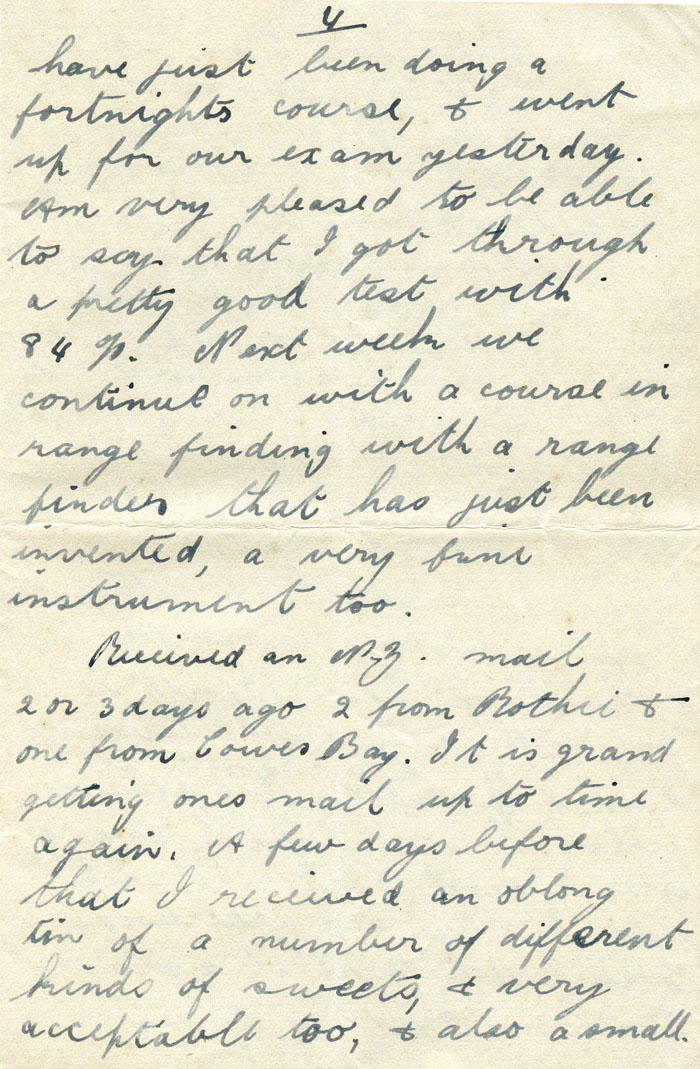 4
have just been doing a
fortnights course, & went
up for our exam yesterday.
Am very pleased to be able
to say that I got through
a pretty good test with
84 %. Next week we
continue on with a course in
range finding with a range
finder that has just been
invented, a very fine
instrument too.
Received an N.Z. mail
2 or 3 days ago 2 from Rothie &
one from Cowes Bay. It is grand
getting ones mail up to time
again. A few days before
that I received an oblong
tin of a number of different
kinds of sweets, & very
acceptable too, & also a small.